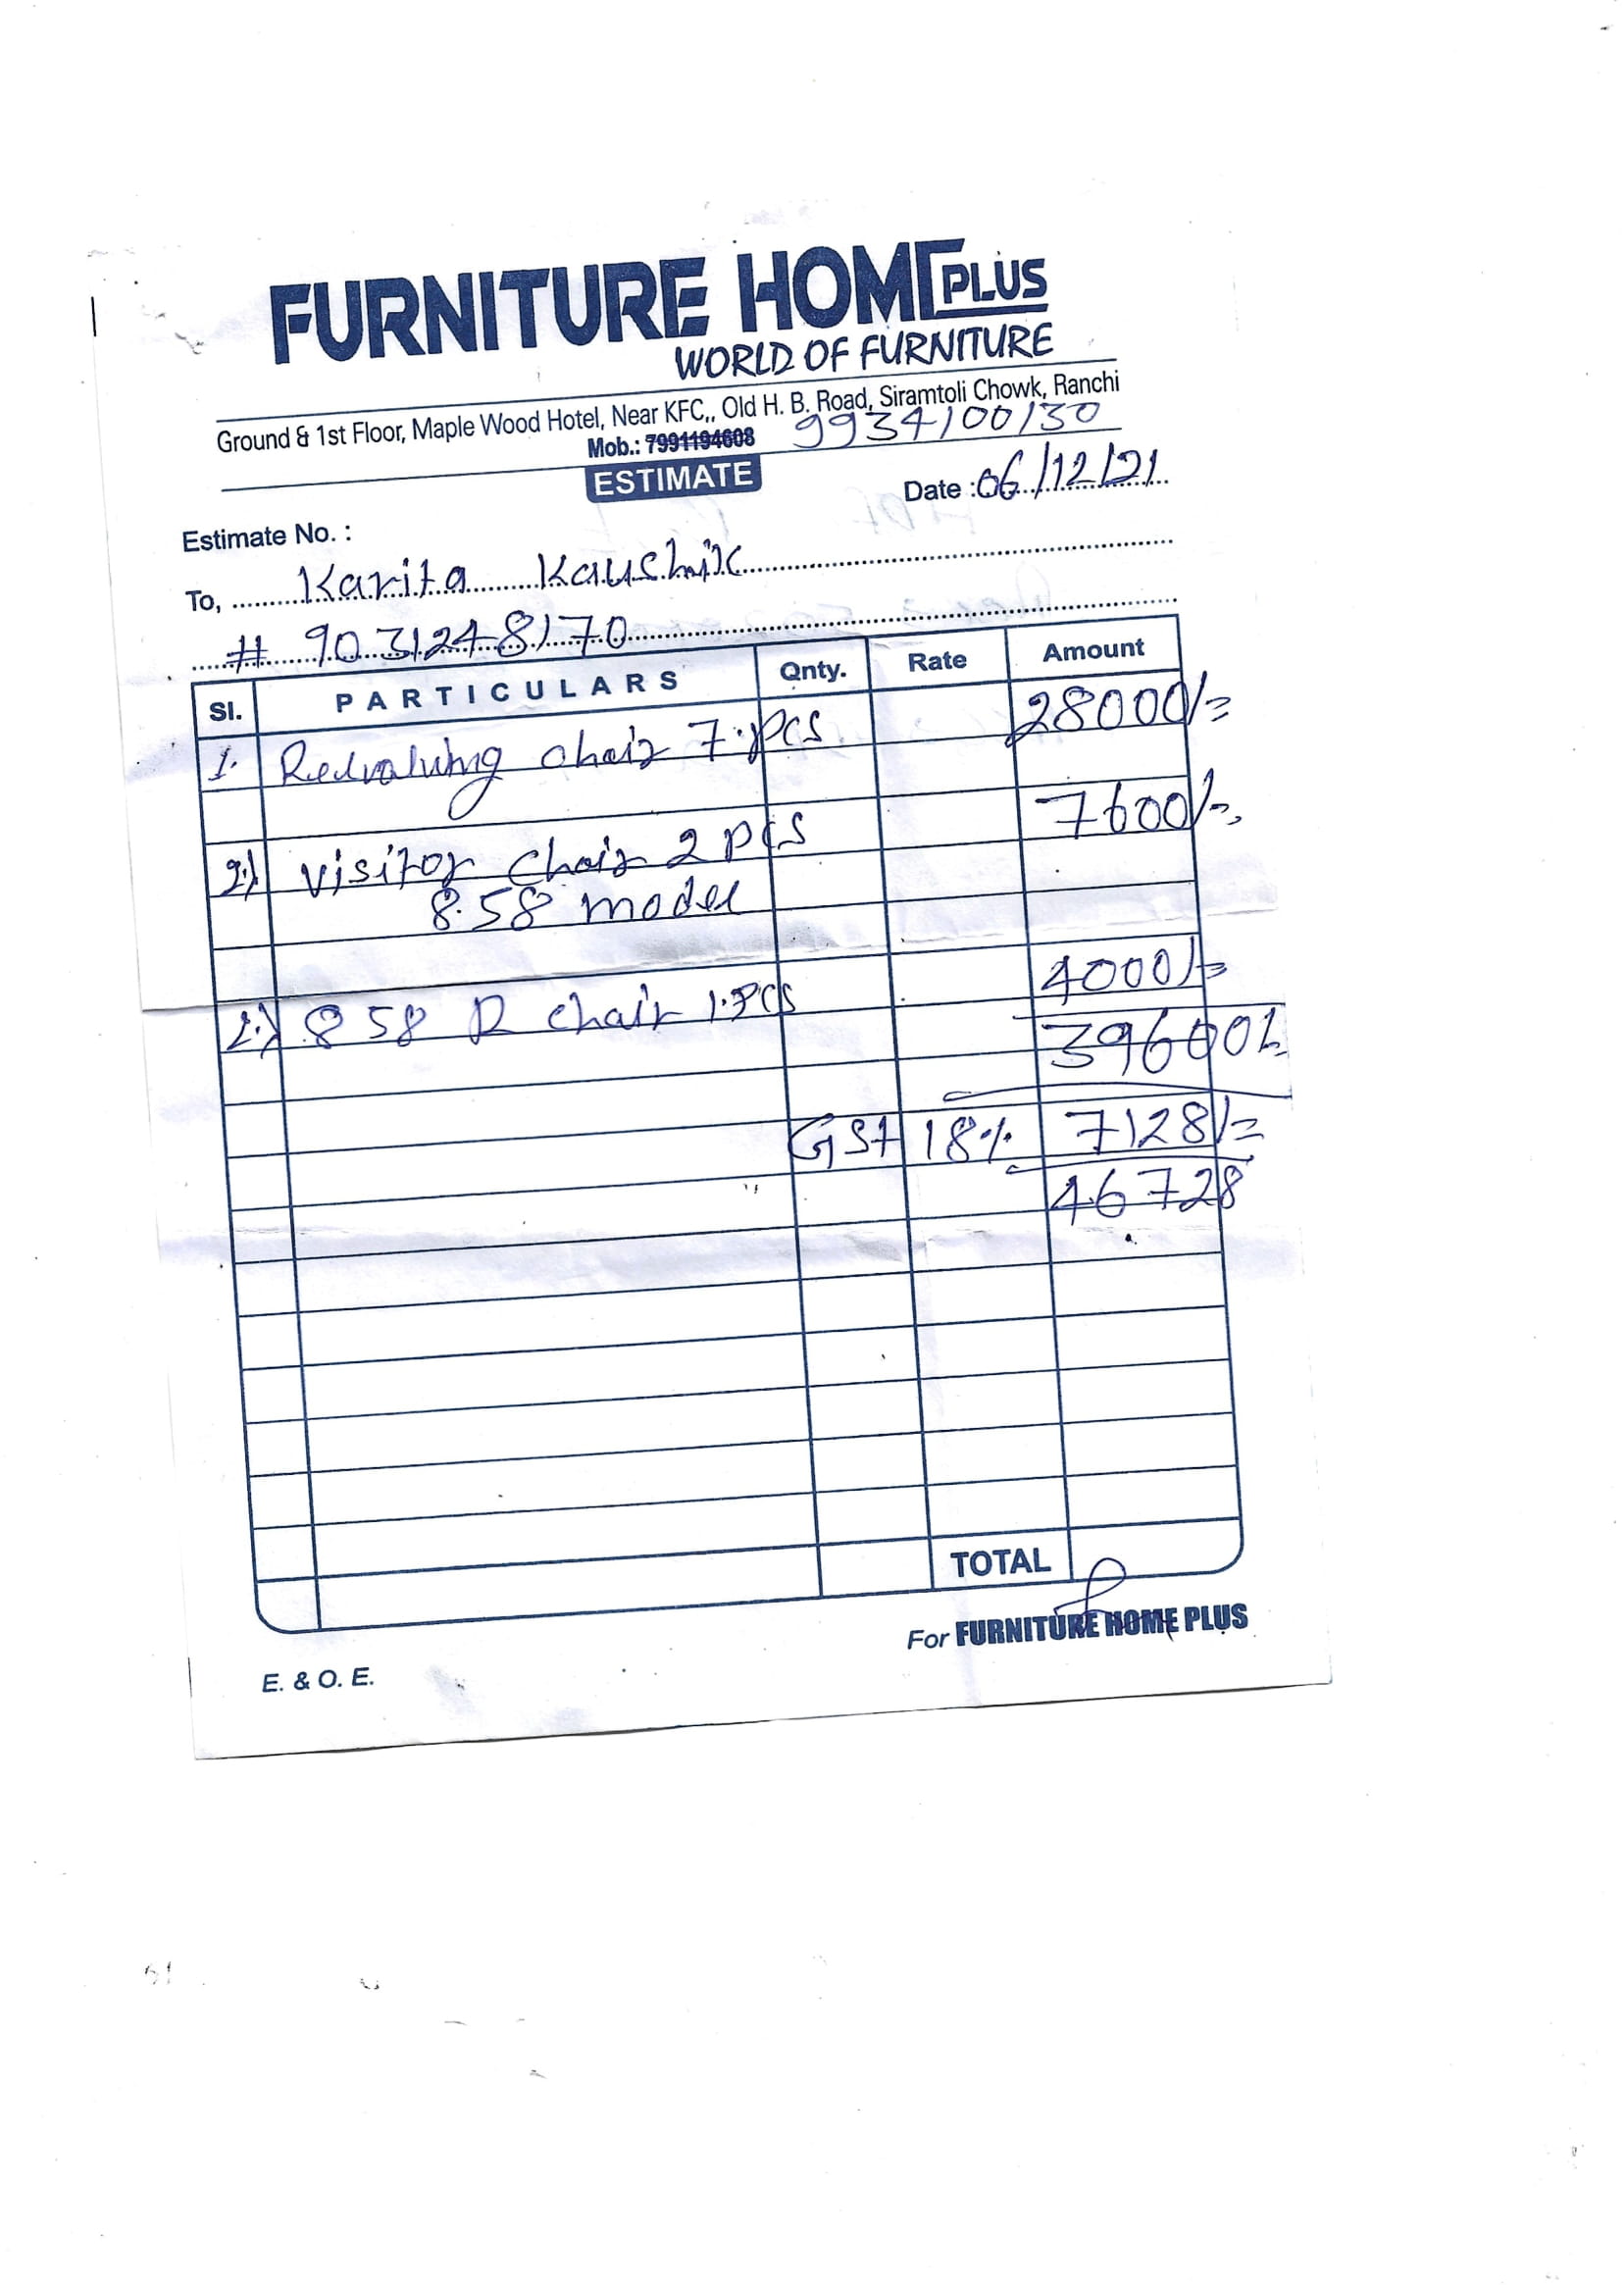 FURNITURE HOME PLUS
WORLD OF FURNITURE
Ground & 1st Floor, Maple Wood Hotel, Near KFC,, Old H. B. Road, Siramtoli Chowk, Ranchi
Mob.: 7991194608 9934100130
ESTIMATE
Date : 06/12/21
Estimate No. :
To, Karita Kaushik
# 9031248170
Sl. PARTICULARS Qnty. Rate Amount
1. Redvalving chair 7.pcs 28000/=
2) Visitor Chair 2 pcs 7600/-
8.58 model
2.) 858 R chair 1.Pcs 4000/=
39600/-
GST 18% 7128/=
46728
TOTAL
For FURNITURE HOME PLUS
E. & O. E.